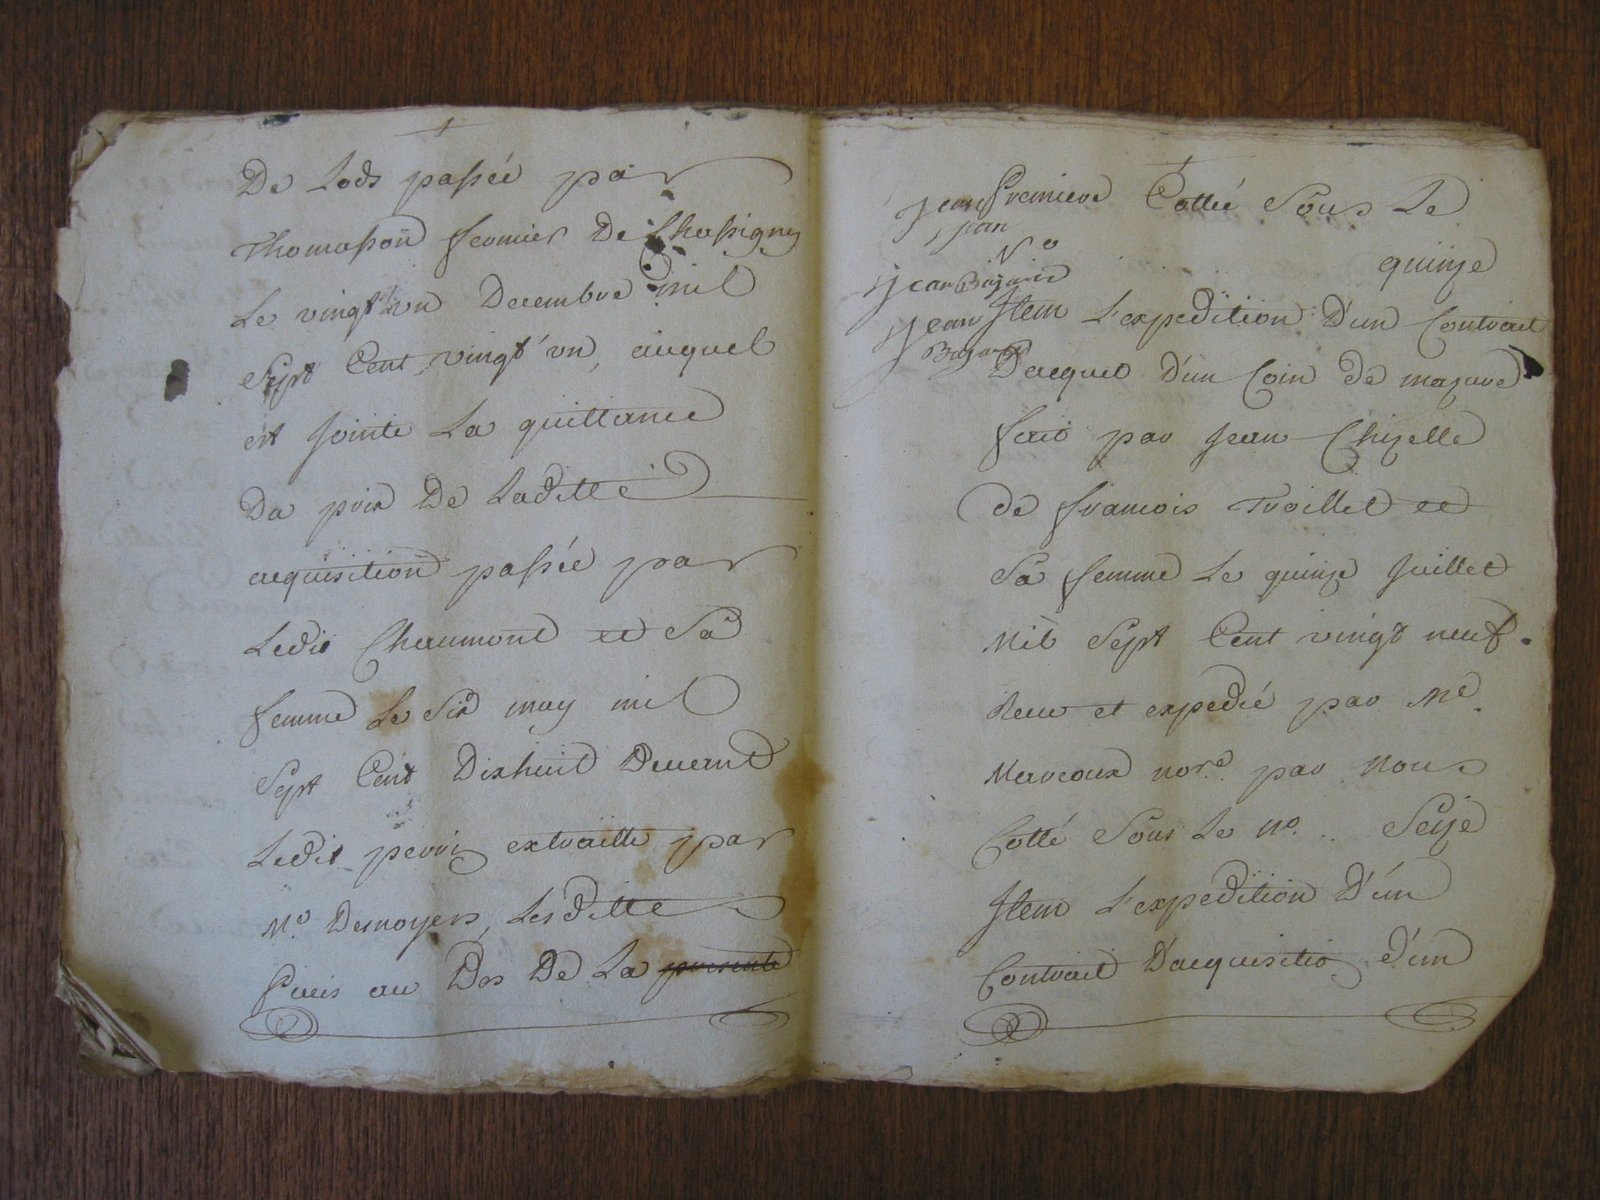 De Lods passée par
Thomasson fermier De Chassigny
Le vingt un Decembre mil
Sept Cent vingt un, auquel
est Jointe La quittance
Du prix De Laditte
acquisition passée par
Ledit Chaumont et Sa
femme Le Six may mil
Sept Cent Dixhuit Devant
Ledit perrin extraitte par
Me. Desnoyers, Lesditte
au Dos De La presente
premiere Cottée Sous Le
No quinze
Jean
Jean
Jean
Item L'expedition D'un Contract
Dacquet D'un Coin de mazure
fait par Jean Chizelle
de francois Troillet et
Sa femme Le quinze Juillet
Mil Sept Cent vingt neuf.
Receu et expedié par Me.
Marveaux nore. par nous
Cotté Sous Le No. .. Seize
Item L'expedition D'un
Contract D'acquisitio d'un